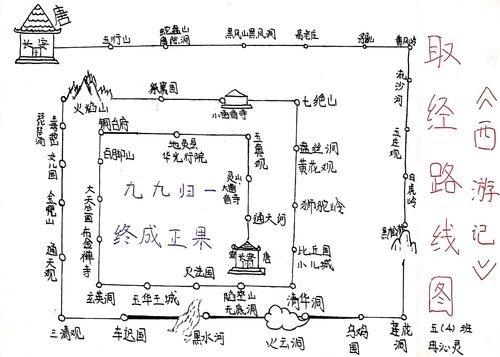 《西游记》
取经路线图
五(4)班
唐
长安
五行山
蛇盘山
鹰愁涧
黑风山黑风洞
高老庄
黄风岭
流沙河
五庄观
白虎岭
莲花洞
乌鸡国
火云洞
黑水河
车迟国
三清观
通天河
金兜山
女儿国
琵琶洞
火焰山
祭赛国
小雷音寺
七绝山
盘丝洞
黄花观
狮驼岭
比丘国
小儿城
清华洞
陷空山
无底洞
灭法国
玉华王城
玄英洞
布金禅寺
大天竺国
百脚山
铜台府
地灵县
华光行院
玉真观
灵山
大雷音寺
通天河
长安
唐
九九归一
终成正果